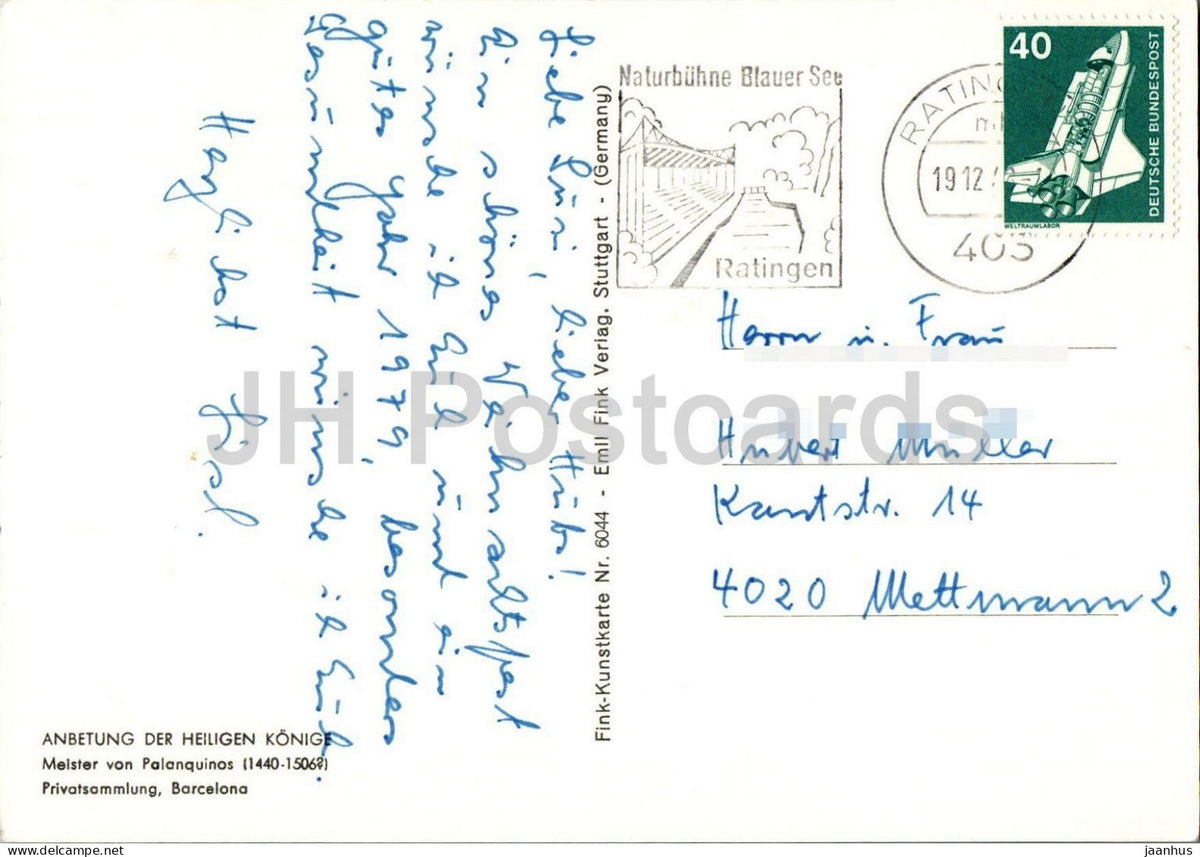 Liebe Susi, lieber Hubs!
Ein schönes Weihnachtsfest
wünsche ich Euch und ein
gutes Jahr 1979, besonders
Gesundheit wünsche ich Euch.
Herzlichst
ANBETUNG DER HEILIGEN KÖNIGE
Meister von Palanquinos (1440-1506?)
Privatsammlung, Barcelona
Fink-Kunstkarte Nr. 6044 - Emil Fink Verlag. Stuttgart - (Germany)
Naturbühne Blauer See
Ratingen
19.12.
403
40
DEUTSCHE BUNDESPOST
WELTRAUMLABOR
Herrn u. Frau
Hubert Müller
Kantstr. 14
4020 Mettmann 2
JH Postcards
jaanhus